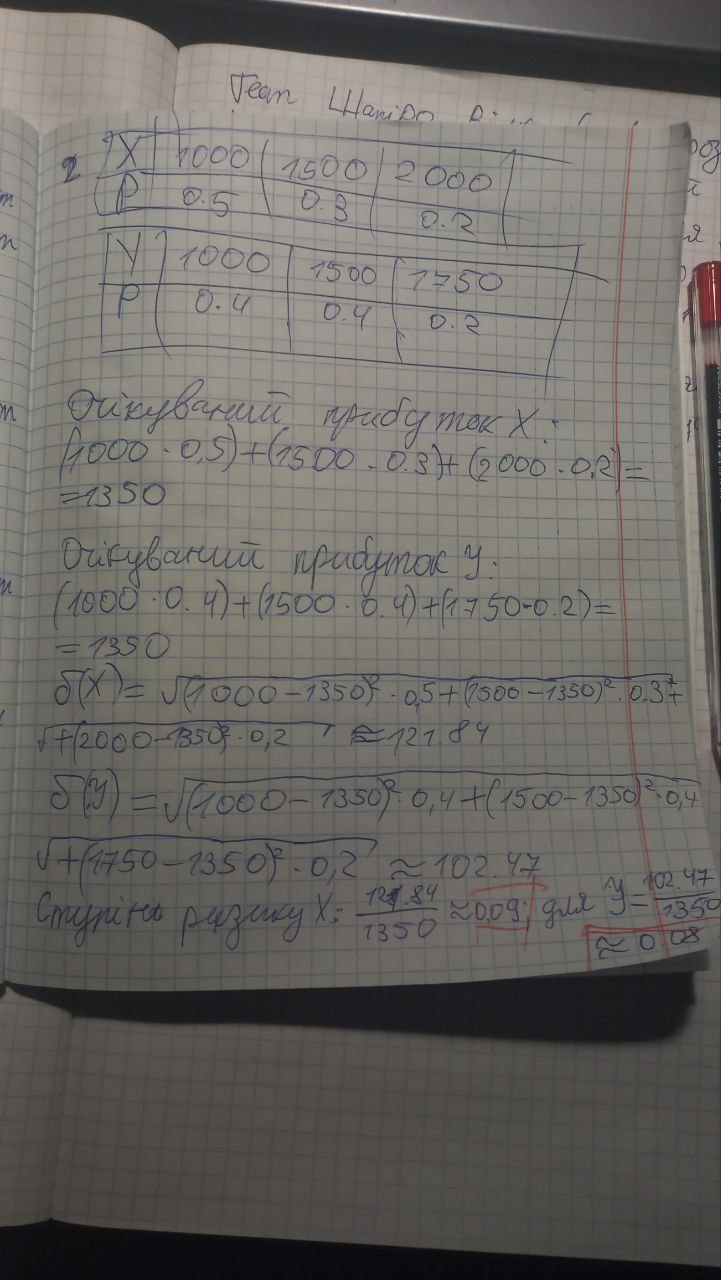 Теат Шапіро
2 X 1000 1500 2000
P 0.5 0.3 0.2
Y 1000 1500 1750
P 0.4 0.4 0.2
Очікуваний прибуток X:
(1000 · 0,5)+(1500 · 0.3)+(2000 · 0.2)=
=1350
Очікуваний прибуток Y:
(1000 · 0.4)+(1500 · 0.4)+(1750 · 0.2)=
=1350
б(X)= √(1000-1350)² · 0,5+(1500-1350)² · 0.3+
√+(2000-1350)² · 0,2 ≈121.84
б(Y) =√(1000-1350)² · 0,4+(1500-1350)² · 0,4
√+(1750-1350)² · 0,2 ≈102.47
Ступінь ризику X: 121.84/1350 ≈0.09; для Y=102.47/1350
≈ 0.08